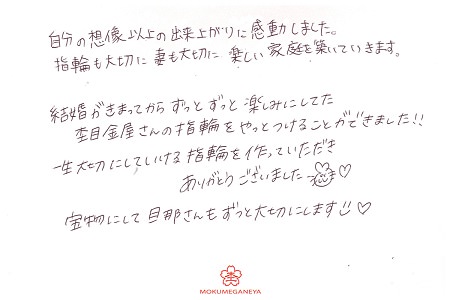 自分の想像以上の出来上がりに感動しました。
指輪も大切に 妻も大切に 楽しい家庭を築いていきます。
結婚がきまってから ずっと ずっと 楽しみにしてた
杢目金屋さんの指輪を やっとつけることができました!!
一生大切にしていける指輪を作っていただき
ありがとうございました ♡
宝物にして 旦那さんも ずっと大切にします ♡
MOKUMEGANEYA